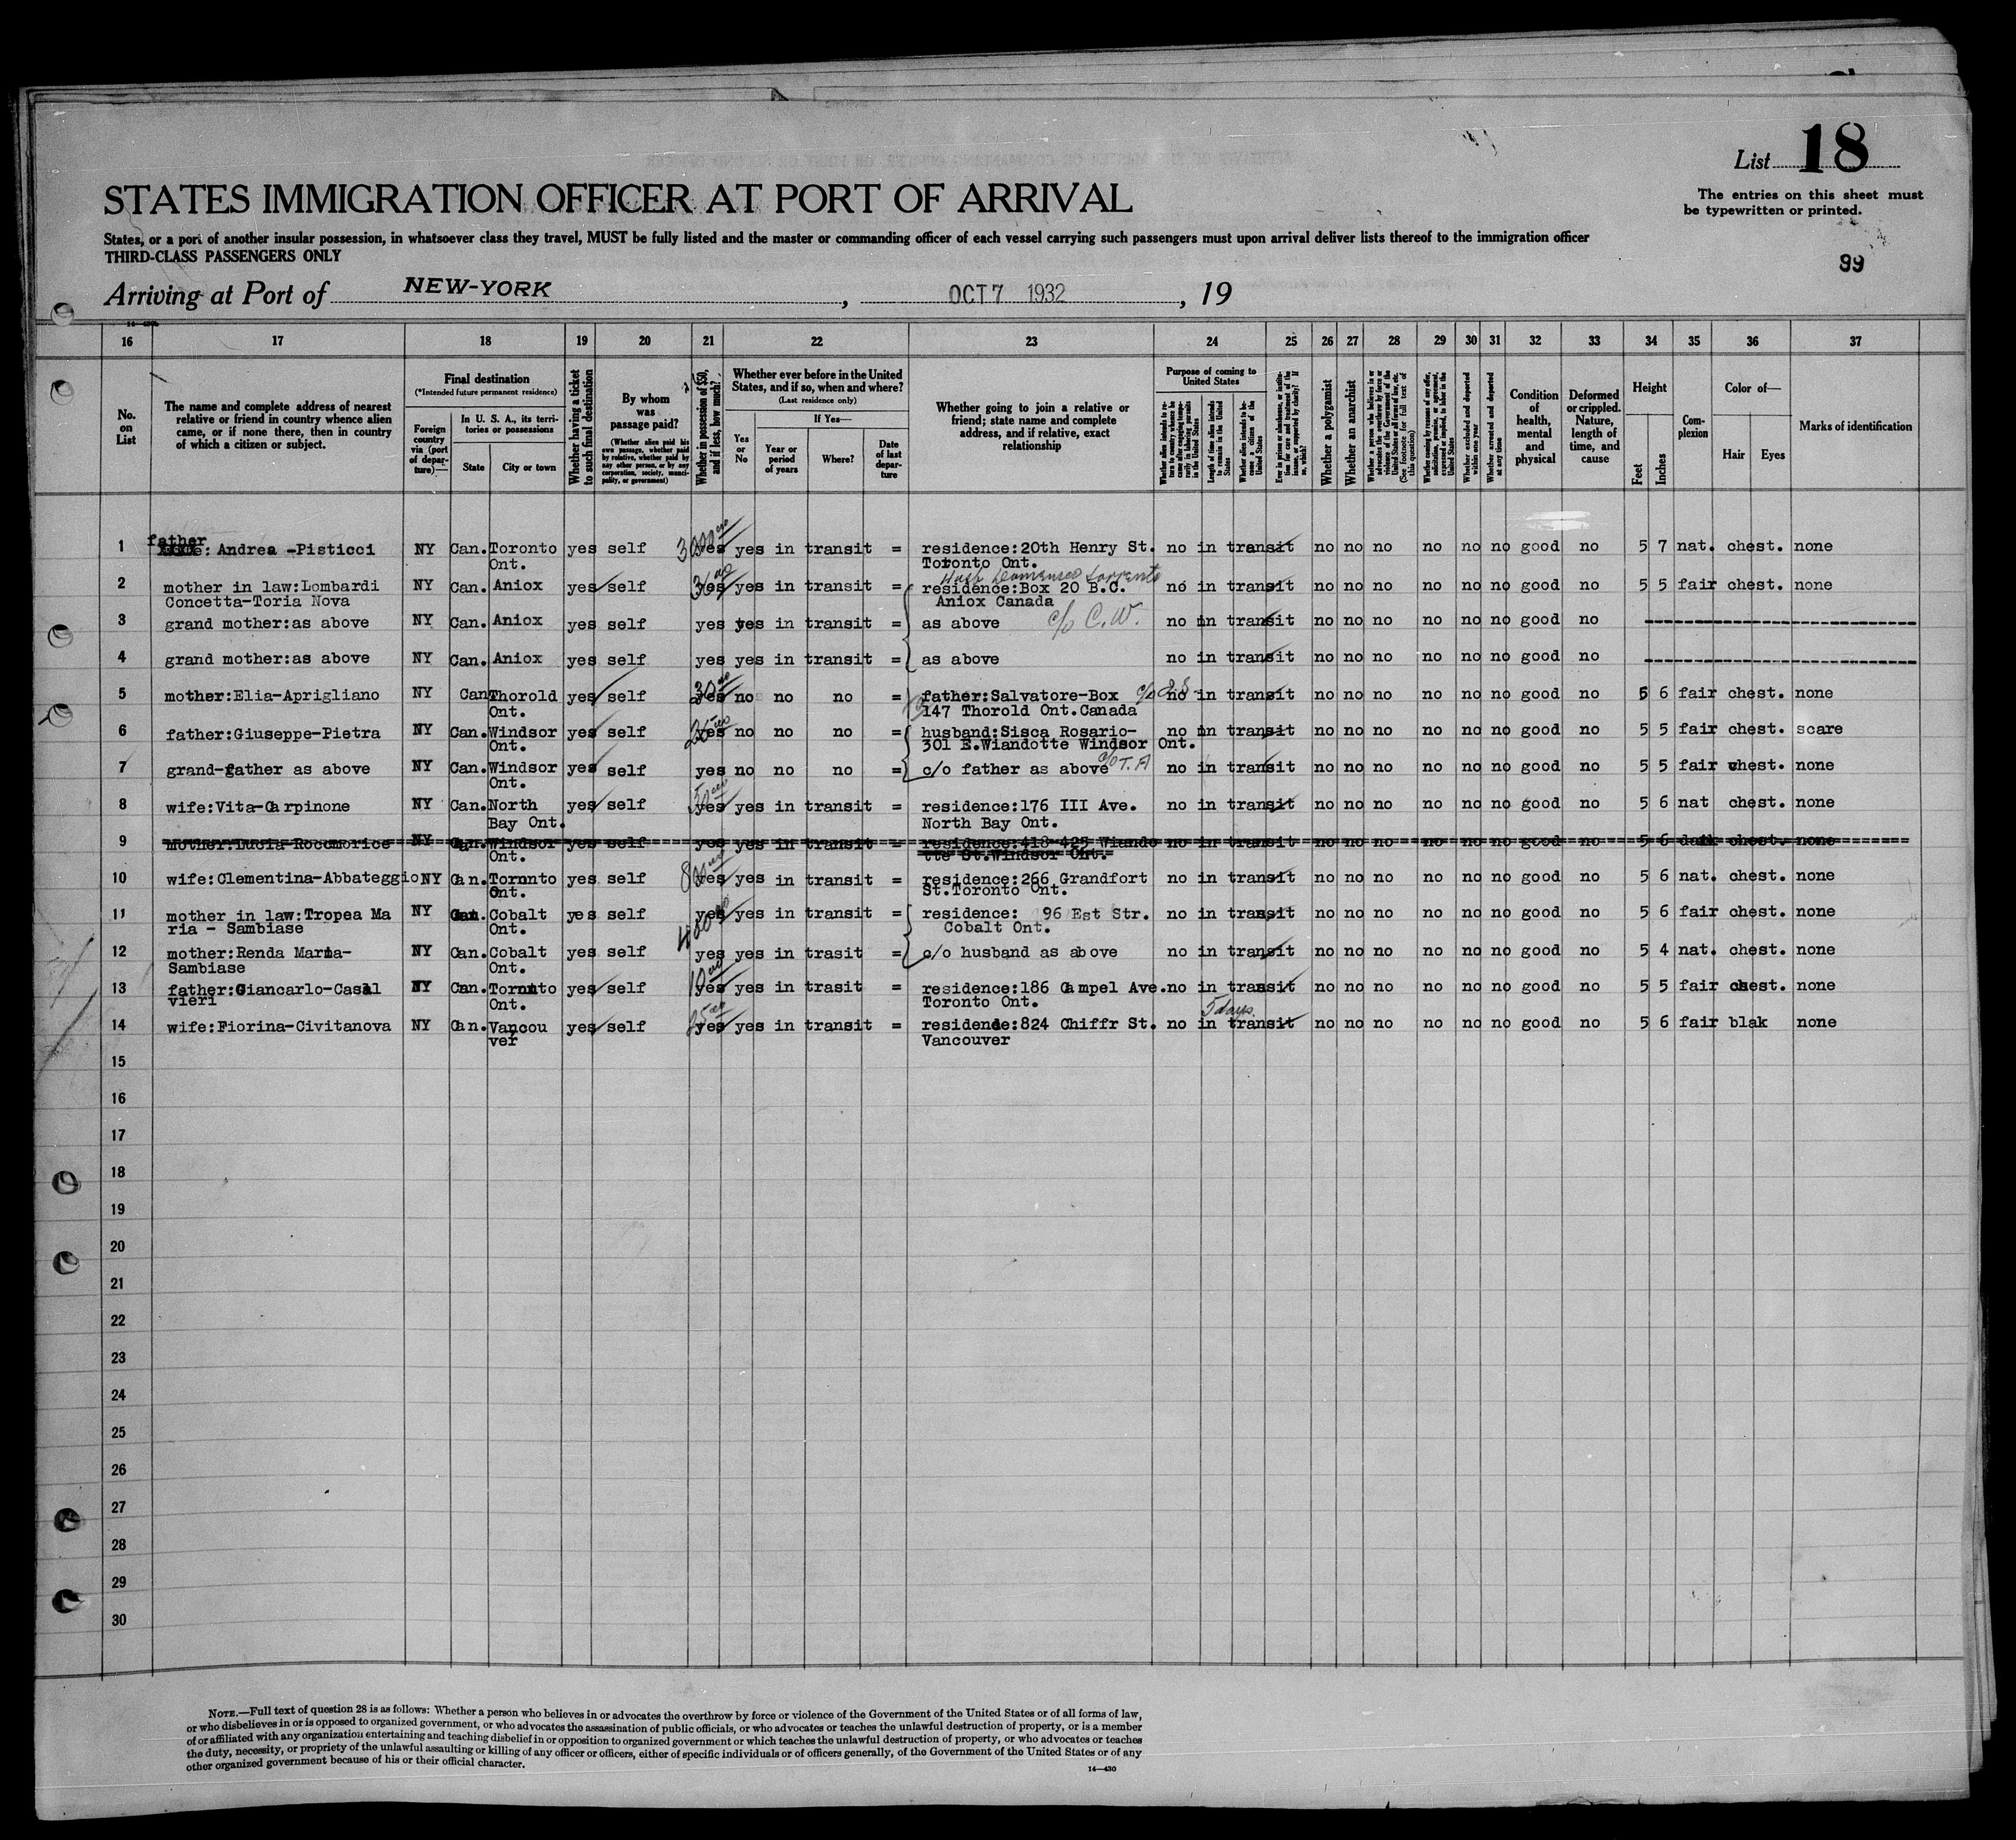 List 18
The entries on this sheet must
be typewritten or printed.
STATES IMMIGRATION OFFICER AT PORT OF ARRIVAL
States, or a port of another insular possession, in whatsoever class they travel, MUST be fully listed and the master or commanding officer of each vessel carrying such passengers must upon arrival deliver lists thereof to the immigration officer
THIRD-CLASS PASSENGERS ONLY
99
Arriving at Port of NEW-YORK, OCT 7 1932, 19
16 17 18 19 20 21 22 23 24 25 26 27 28 29 30 31 32 33 34 35 36 37
No. on List
The name and complete address of nearest relative or friend in country whence alien came, or if none there, then in country of which a citizen or subject.
Final destination
(*Intended future permanent residence)
Foreign country via (port of departure)
In U. S. A., its territories or possessions
State
City or town
Whether having a ticket to such final destination
By whom was passage paid?
(Whether alien paid his own passage, whether paid by relative, whether paid by any other person, or by any corporation, society, municipality, or government)
Whether in possession of $50, and if less, how much?
Whether ever before in the United States, and if so, when and where?
(Last residence only)
Yes or No
If Yes—
Year or period of years
Where?
Date of last departure
Whether going to join a relative or friend; state name and complete address, and if relative, exact relationship
Purpose of coming to United States
Whether alien intends to return to country whence he came after engaging temporarily in laboring pursuits in the United States
Length of time alien intends to remain in the United States
Whether alien intends to become a citizen of the United States
Ever in prison or almshouse, or institution for care and treatment of the insane, or supported by charity? If so, which?
Whether a polygamist
Whether an anarchist
Whether a person who believes in or advocates the overthrow by force or violence of the Government of the United States or all forms of law, etc. (See footnote for full text of this question)
Whether coming by reasons of any offer, solicitation, promise, or agreement, expressed or implied, to labor in the United States
Whether excluded and deported within one year
Whether arrested and deported at any time
Condition of health, mental and physical
Deformed or crippled. Nature, length of time, and cause
Height
Feet
Inches
Complexion
Color of—
Hair
Eyes
Marks of identification
father
1 Andrea -Pisticci NY Can. Toronto yes self yes yes in transit = residence:20th Henry St. no in transit no no no no no no good no 5 7 nat. chest. none
Ont. Toronto Ont.
2 mother in law:Lombardi NY Can. Aniox yes self yes yes in transit = residence:Box 20 B.C. no in transit no no no no no no good no 5 5 fair chest. none
Concetta-Toria Nova Aniox Canada
3 grand mother:as above NY Can. Aniox yes self yes yes in transit = as above c/o C.W. no in transit no no no no no no good no
4 grand mother:as above NY Can. Aniox yes self yes yes in transit = as above no in transit no no no no no no good no
5 mother:Elia-Aprigliano NY Can Thorold yes self 30 yes no no no = father:Salvatore-Box no in transit no no no no no no good no 5 6 fair chest. none
Ont. 147 Thorold Ont.Canada
6 father:Giuseppe-Pietra NY Can. Windsor yes self yes no no no = husband:Sisca Rosario- no in transit no no no no no no good no 5 5 fair chest. scare
Ont. 301 E.Wiandotte Windsor Ont.
7 grand-father as above NY Can. Windsor yes self yes no no no = c/o father as above no in transit no no no no no no good no 5 5 fair chest. none
Ont.
8 wife:Vita-Carpinone NY Can. North yes self yes yes in transit = residence:176 III Ave. no in transit no no no no no no good no 5 6 nat chest. none
Bay Ont. North Bay Ont.
9 mother:Lucia Rocomorice NY Can. Windsor yes self yes yes in transit = residence:418-425 Wiando no in transit no no no no no no good no 5 6 dark chest. none
Ont. tte St.Windsor Ont.
10 wife:Clementina-Abbateggio NY Can. Toronto yes self yes yes in transit = residence:266 Grandfort no in transit no no no no no no good no 5 6 nat. chest. none
Ont. St.Toronto Ont.
11 mother in law:Tropea Ma NY Can. Cobalt yes self yes yes in transit = residence: 96 Est Str. no in transit no no no no no no good no 5 6 fair chest. none
ria - Sambiase Ont. Cobalt Ont.
12 mother:Renda Maria- NY Can. Cobalt yes self yes yes in trasit = c/o husband as above no in transit no no no no no no good no 5 4 nat. chest. none
Sambiase Ont.
13 father:Giancarlo-Casal NY Can. Toronto yes self yes yes in trasit = residence:186 Campel Ave. no in transit no no no no no no good no 5 5 fair chest. none
vieri Ont. Toronto Ont.
5 days.
14 wife:Fiorina-Civitanova NY Can. Vancou yes self yes yes in transit = residende:824 Chiffr St. no in transit no no no no no no good no 5 6 fair blak none
ver Vancouver
15
16
17
18
19
20
21
22
23
24
25
26
27
28
29
30
NOTE.—Full text of question 28 is as follows: Whether a person who believes in or advocates the overthrow by force or violence of the Government of the United States or of all forms of law,
or who disbelieves in or is opposed to organized government, or who advocates the assassination of public officials, or who advocates or teaches the unlawful destruction of property, or is a member
of or affiliated with any organization entertaining and teaching disbelief in or opposition to organized government or which teaches the unlawful destruction of property, or who advocates or teaches
the duty, necessity, or propriety of the unlawful assaulting or killing of any officer or officers, either of specific individuals or of officers generally, of the Government of the United States or of any
other organized government because of his or their official character.
14—430